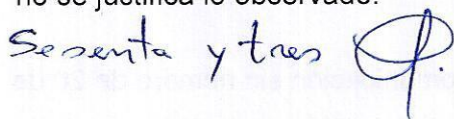 no se justifica lo observado.
Sesenta y tres